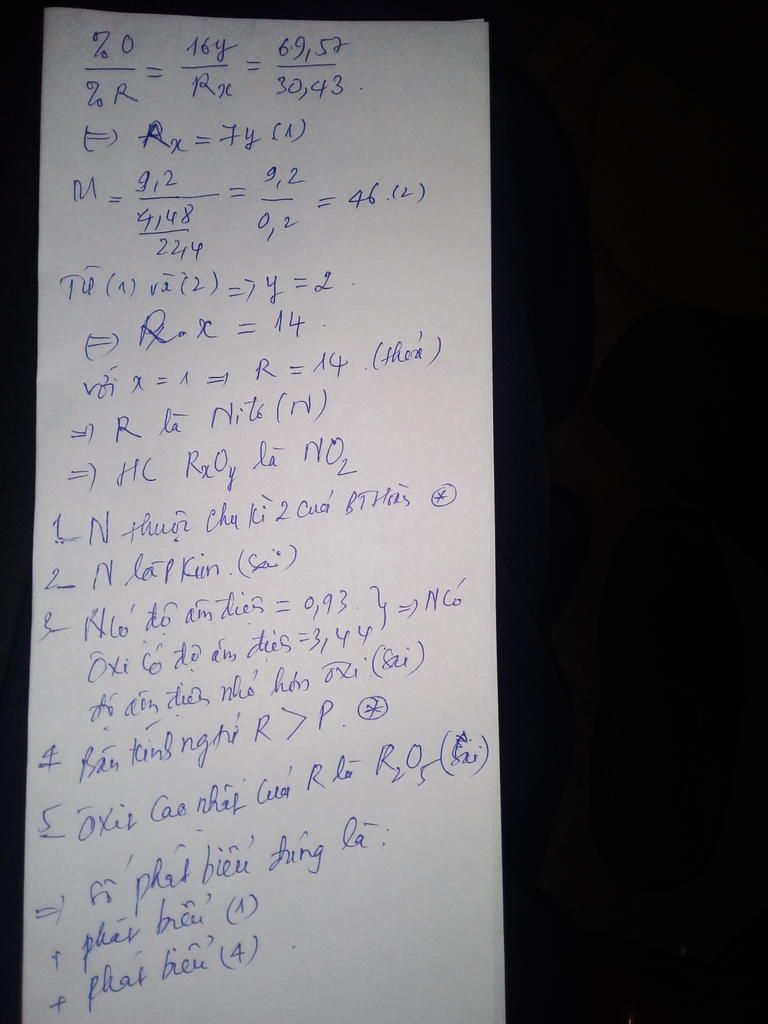 %O / %R = 16y / Rx = 69,57 / 30,43.
⇔ Rx = 7y (1)
M = 9,2 / (4,48 / 22,4) = 9,2 / 0,2 = 46.(2)
Từ (1) và (2) => y = 2.
⇔ R.x = 14.
với x = 1 => R = 14 (thoả)
=> R là Nitơ (N)
=> HC RxOy là NO2
1_ N thuộc chu kì 2 của BTHoàn ⊛
2_ N là P Kim. (Sai)
3_ N có độ âm điện = 0,93. } => N có
Oxi có độ âm điện = 3,44
độ âm điện nhỏ hơn Oxi. (Sai)
4 Bán kính ngtử R > P. ⊛
5_ Oxit cao nhất của R là R2O5 (Sai)
=> Số phát biểu đúng là:
+ phát biểu (1)
+ phát biểu (4).